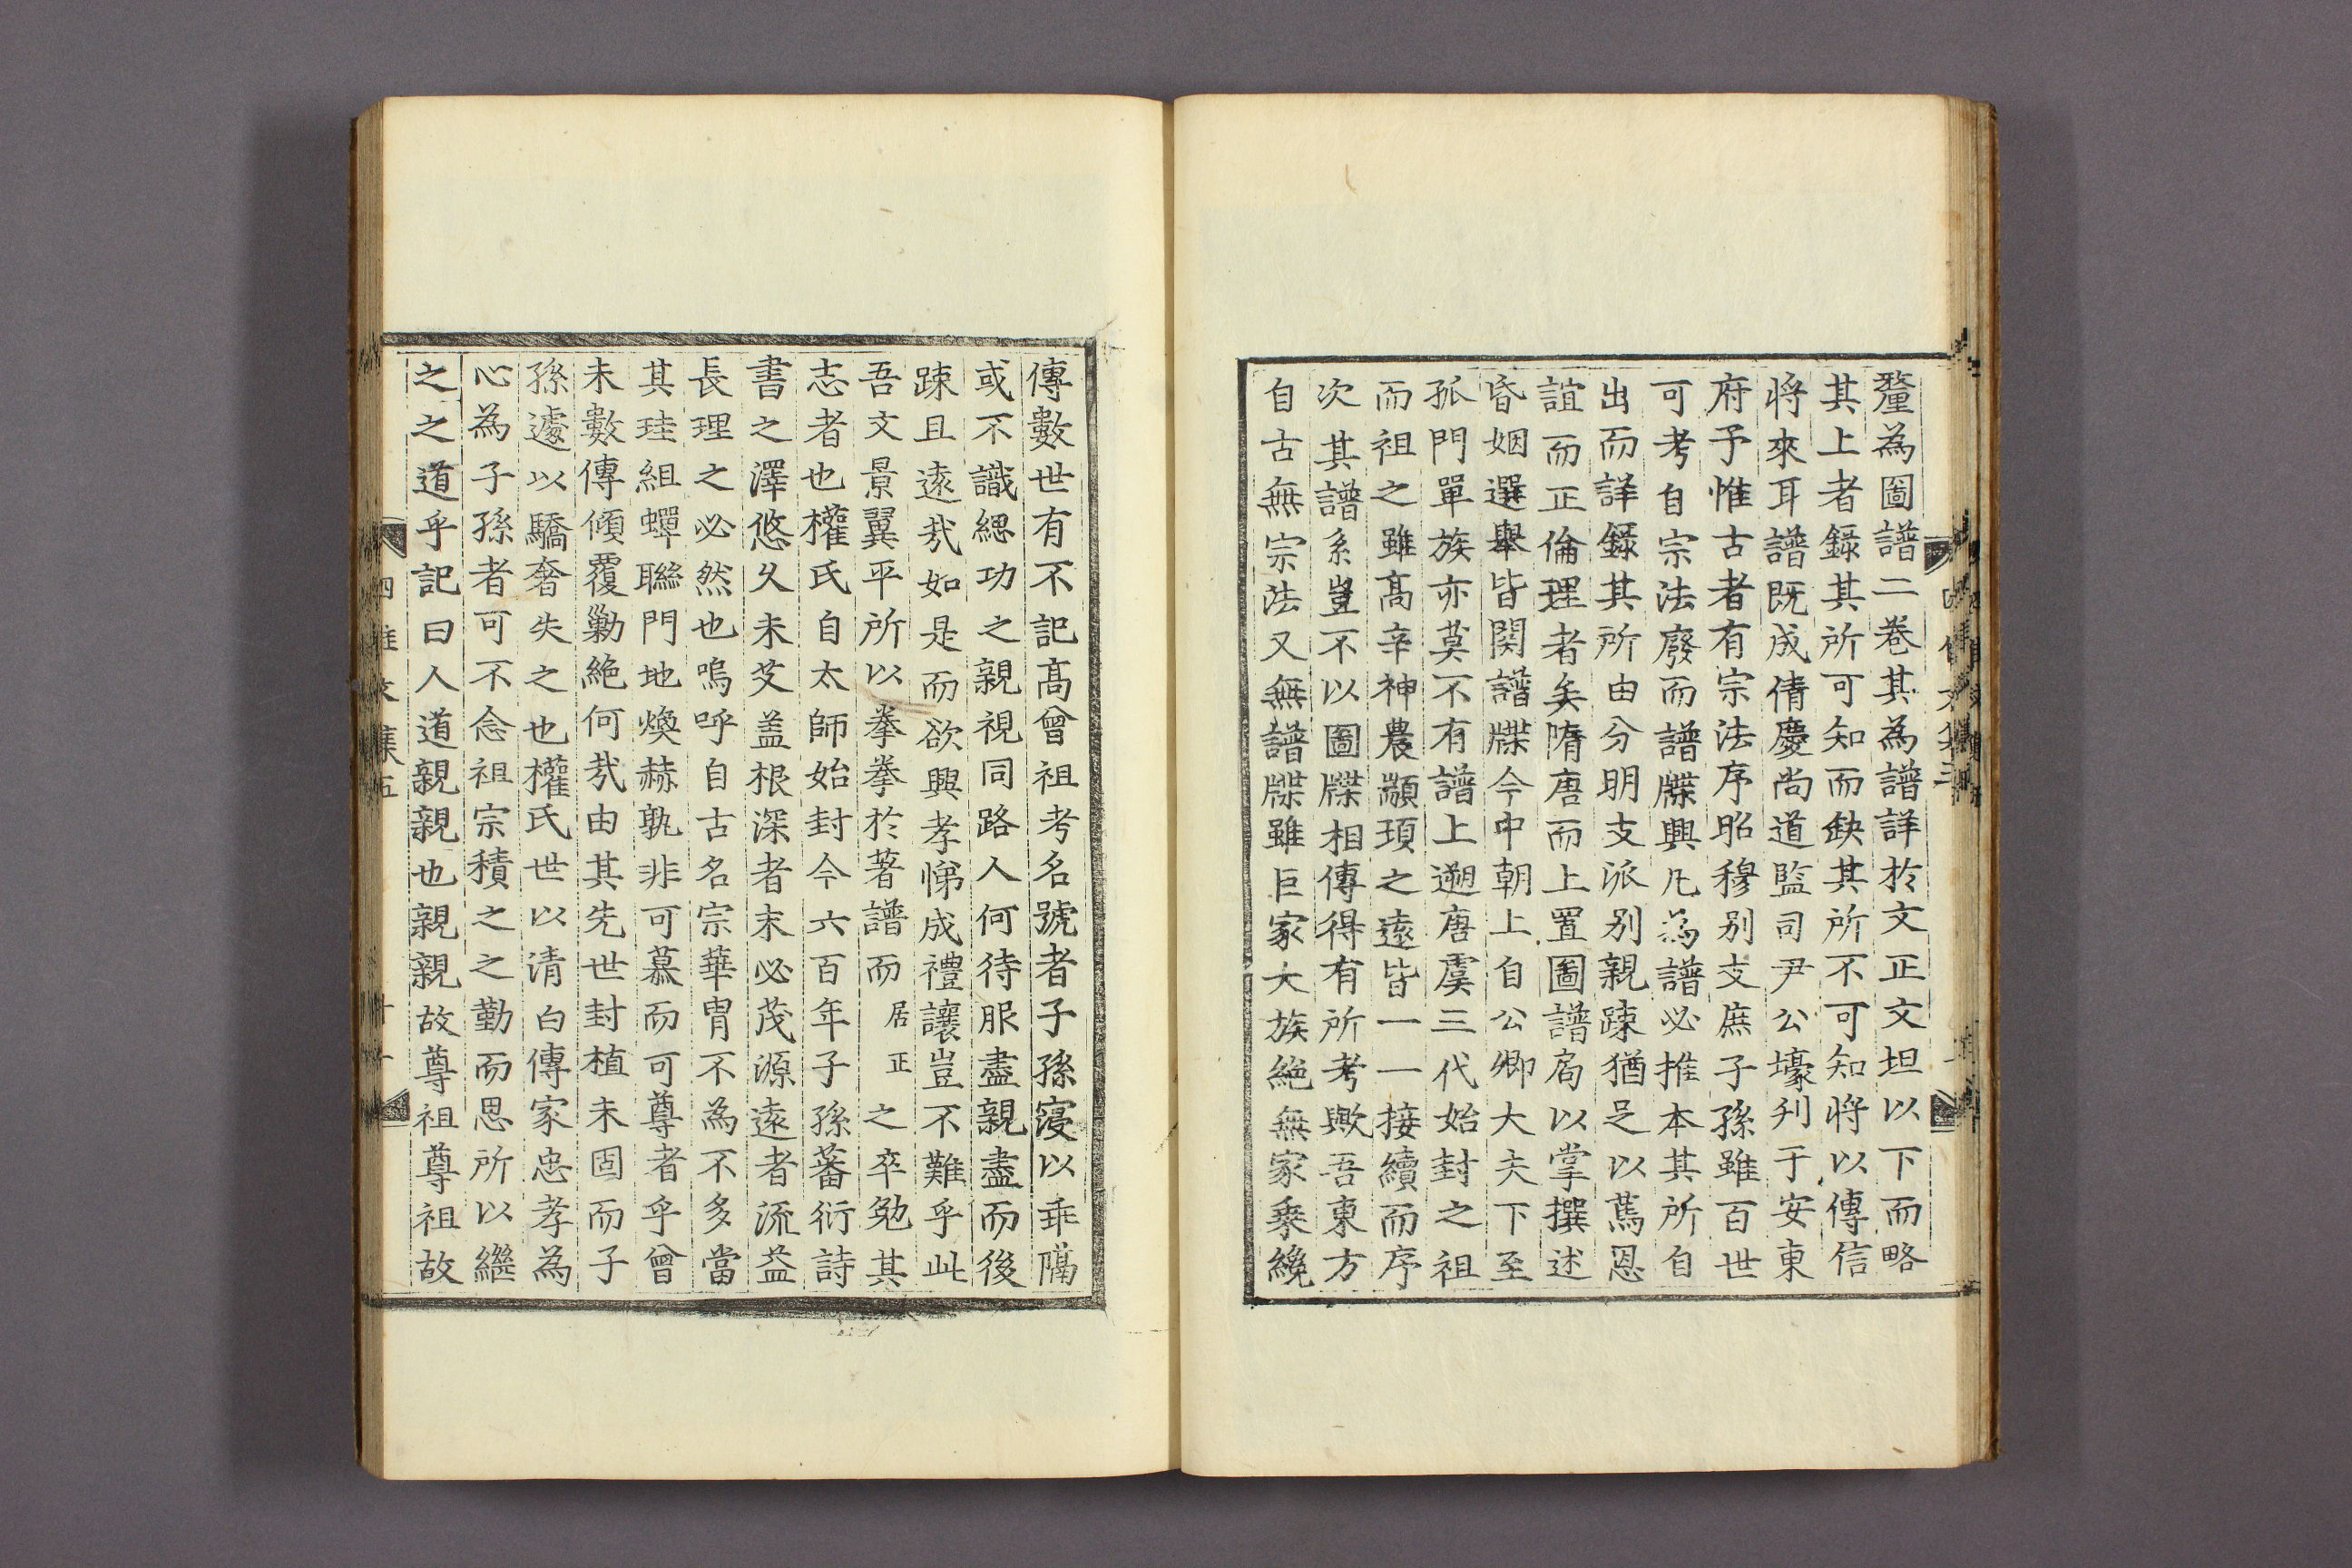 釐為圖譜二卷其為譜詳於文正文坦以下而略
其上者錄其所可知而缺其所不可知將以傳信
將來耳譜既成倩慶尚道監司尹公壕刋于安東
府予惟古者有宗法序昭穆别支庶子孫雖百世
可考自宗法廢而譜牒興凡為譜必推本其所自
出而詳錄其所由分明支派别親踈猶足以萬恩
誼而正倫理者矣隋唐而上置圖譜局以掌撰述
昏姻選舉皆関譜牒今中朝上自公卿大夫下至
孤門單族亦莫不有譜上遡唐虞三代始封之祖
而祖之雖髙辛神農顓頊之遠皆一一接續而序
次其譜系豈不以圖牒相傳得有所考歟吾東方
自古無宗法又無譜牒雖巨家大族絶無家乘纔
傳數世有不記髙曾祖考名號者子孫寖以乖隔
或不識緦功之親視同路人何待服盡親盡而後
踈且遠㦲如是而欲興孝悌成禮讓豈不難乎此
吾文景翼平所以拳拳於著譜而居正之卒勉其
志者也權氏自太師始封今六百年子孫蕃衍詩
書之澤悠久未艾盖根深者末必茂源遠者流益
長理之必然也嗚呼自古名宗華胄不為不多當
其珪組蟬聯門地煥赫孰非可慕而可尊者乎曾
未數傳傾覆勦絶何㦲由其先世封植未固而子
孫遽以驕奢失之也權氏世以清白傳家忠孝為
心為子孫者可不念祖宗積之之勤而思所以繼
之之道乎記曰人道親親也親親故尊祖尊祖故